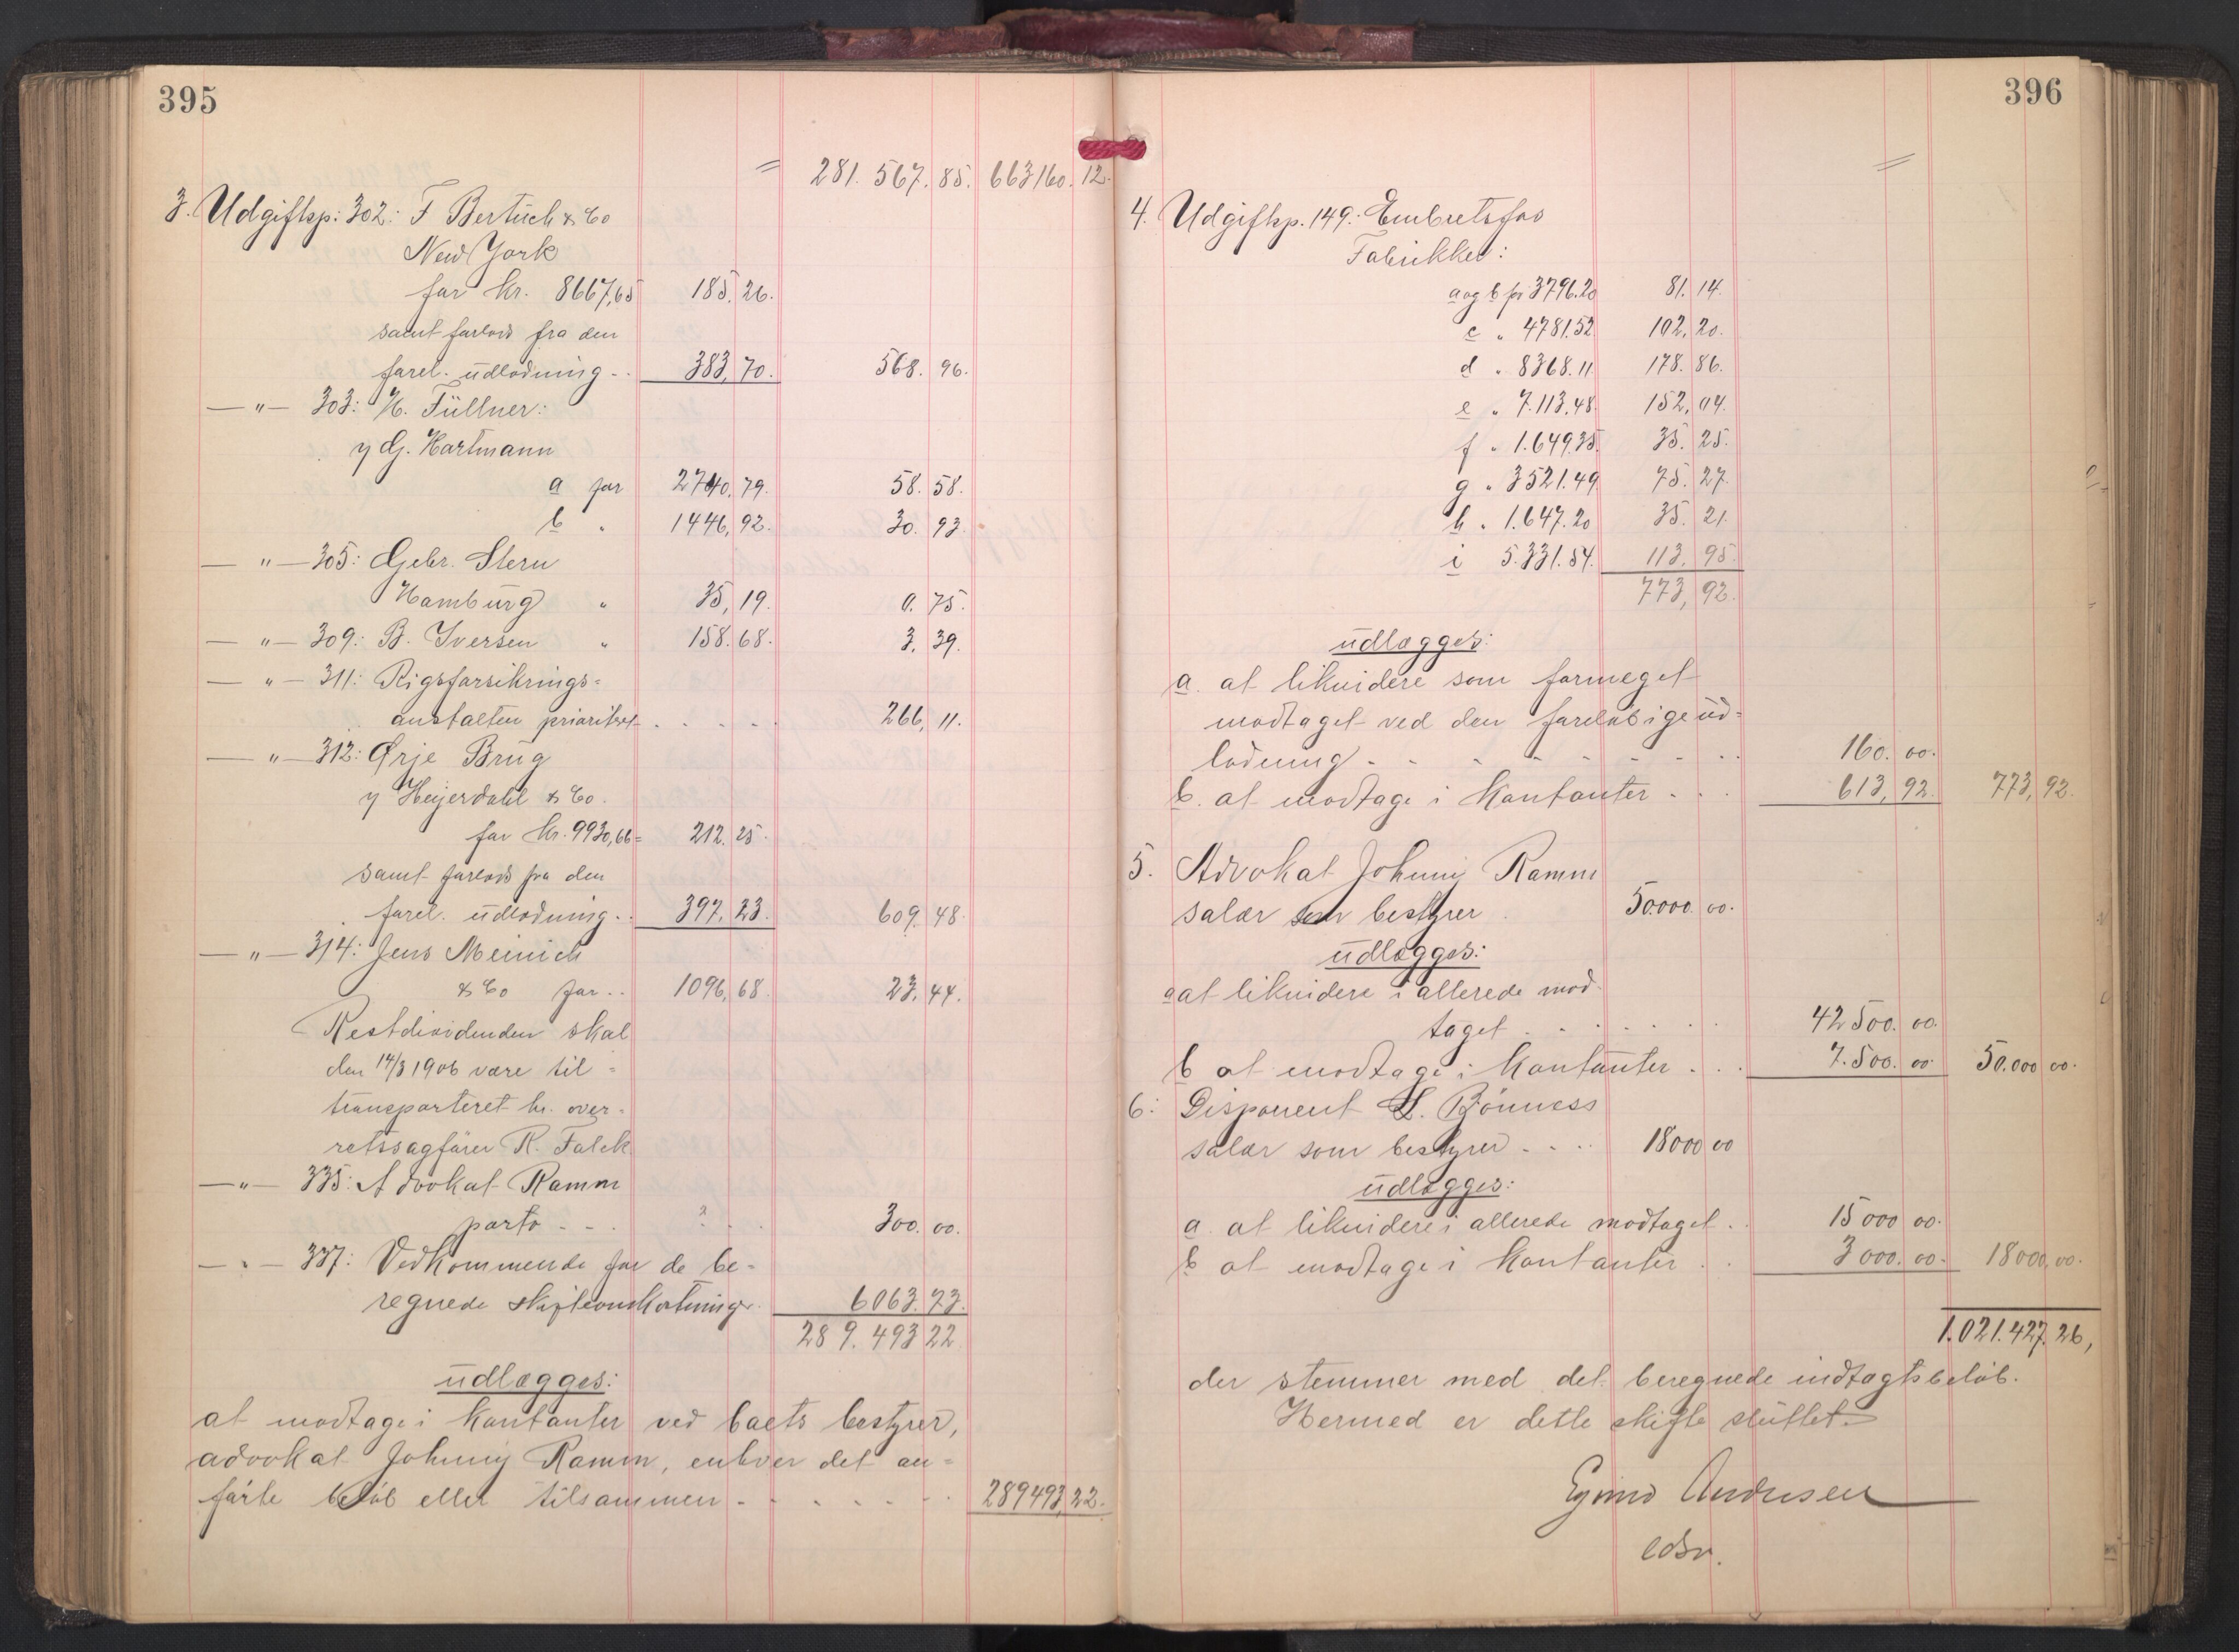 395
= 281.567.85. 663160.12.
3. Udgiftsp: 302: F Bertuch & Co
New York
for kr. 8667,65 185,26.
samt forlods fra den
forel. udlodning - . 383,70. 568.96.
— " — 303: H. Füllner:
y G. Hartmann
a for 2740,79. 58.58.
b " 1446,92. 30.93.
— " — 305: Gebr. Stern
Hamburg " 35,19. 0.75.
— " — 309: B. Iversen " 158.68. 3,39.
— " — 311: Rigsforsikrings=
anstalten prioritet - . . . . 266,11.
— " — 312: Ørje Brug
y Heyerdahl & Co.
for kr. 9930,66= 212.25.
samt forlods fra den
forel. udlodning . . 397.23. 609.48.
— " — 314: Jens Meinich
& Co for . . 1096,68 23,44.
Restdividenden skal
den 14/3 1906 være til =
transporteret hr. over=
retssagfører R. Falck
— " — 335: Advokat Ramm
porto - - . ? . . 300.00.
— " — 337: Vedkommende for de be=
regnede skifteomkostninger. 6063.73.
289.493 22
udlægges:
at modtage i kontanter ved boets bestyrer,
advokat Johnny Ramm, enhver det an=
førte beløb eller tilsammen - . . . . . 289493,22.
396
=
4. Udgiftsp. 149: Embretsfos
Fabrikker:
a og b for 3796.20 81.14.
c " 4781.52 102,20.
d " 8368.11 178.86.
e " 7.113.48. 152,04.
f " 1.649.35. 35.25.
g " 3521.49 75.27.
h " 1.647.20 35.21.
i 5.331.54. 113,95.
773,92.
udlægges:
a. at likvidere som formeget
modtaget ved den foreløbige ud=
lodning - - - - - - - . . 160.00.
b. at modtage i kontanter . . . 613,92. 773,92.
5. Advokat Johnny Ramm
salær som bestyrer . 50.000.00.
udlægges:
a at likvidere i allerede mod-
taget . . . . . . . 42500.00.
b at modtage i kontanter . . . 7.500.00 50.000 00.
6: Disponent L. Bönness
salær som bestyrer - . . . 18000 00
udlægges:
a. at likvidere i allerede modtaget . . 15000 00.
b at modtage i kontanter . . 3000.00. 18000,00.
1.021.427.26,
der stemmer med det beregnede indtægtsbeløb.
Hermed er dette skifte sluttet.
Eyvind Andersen
edsv.